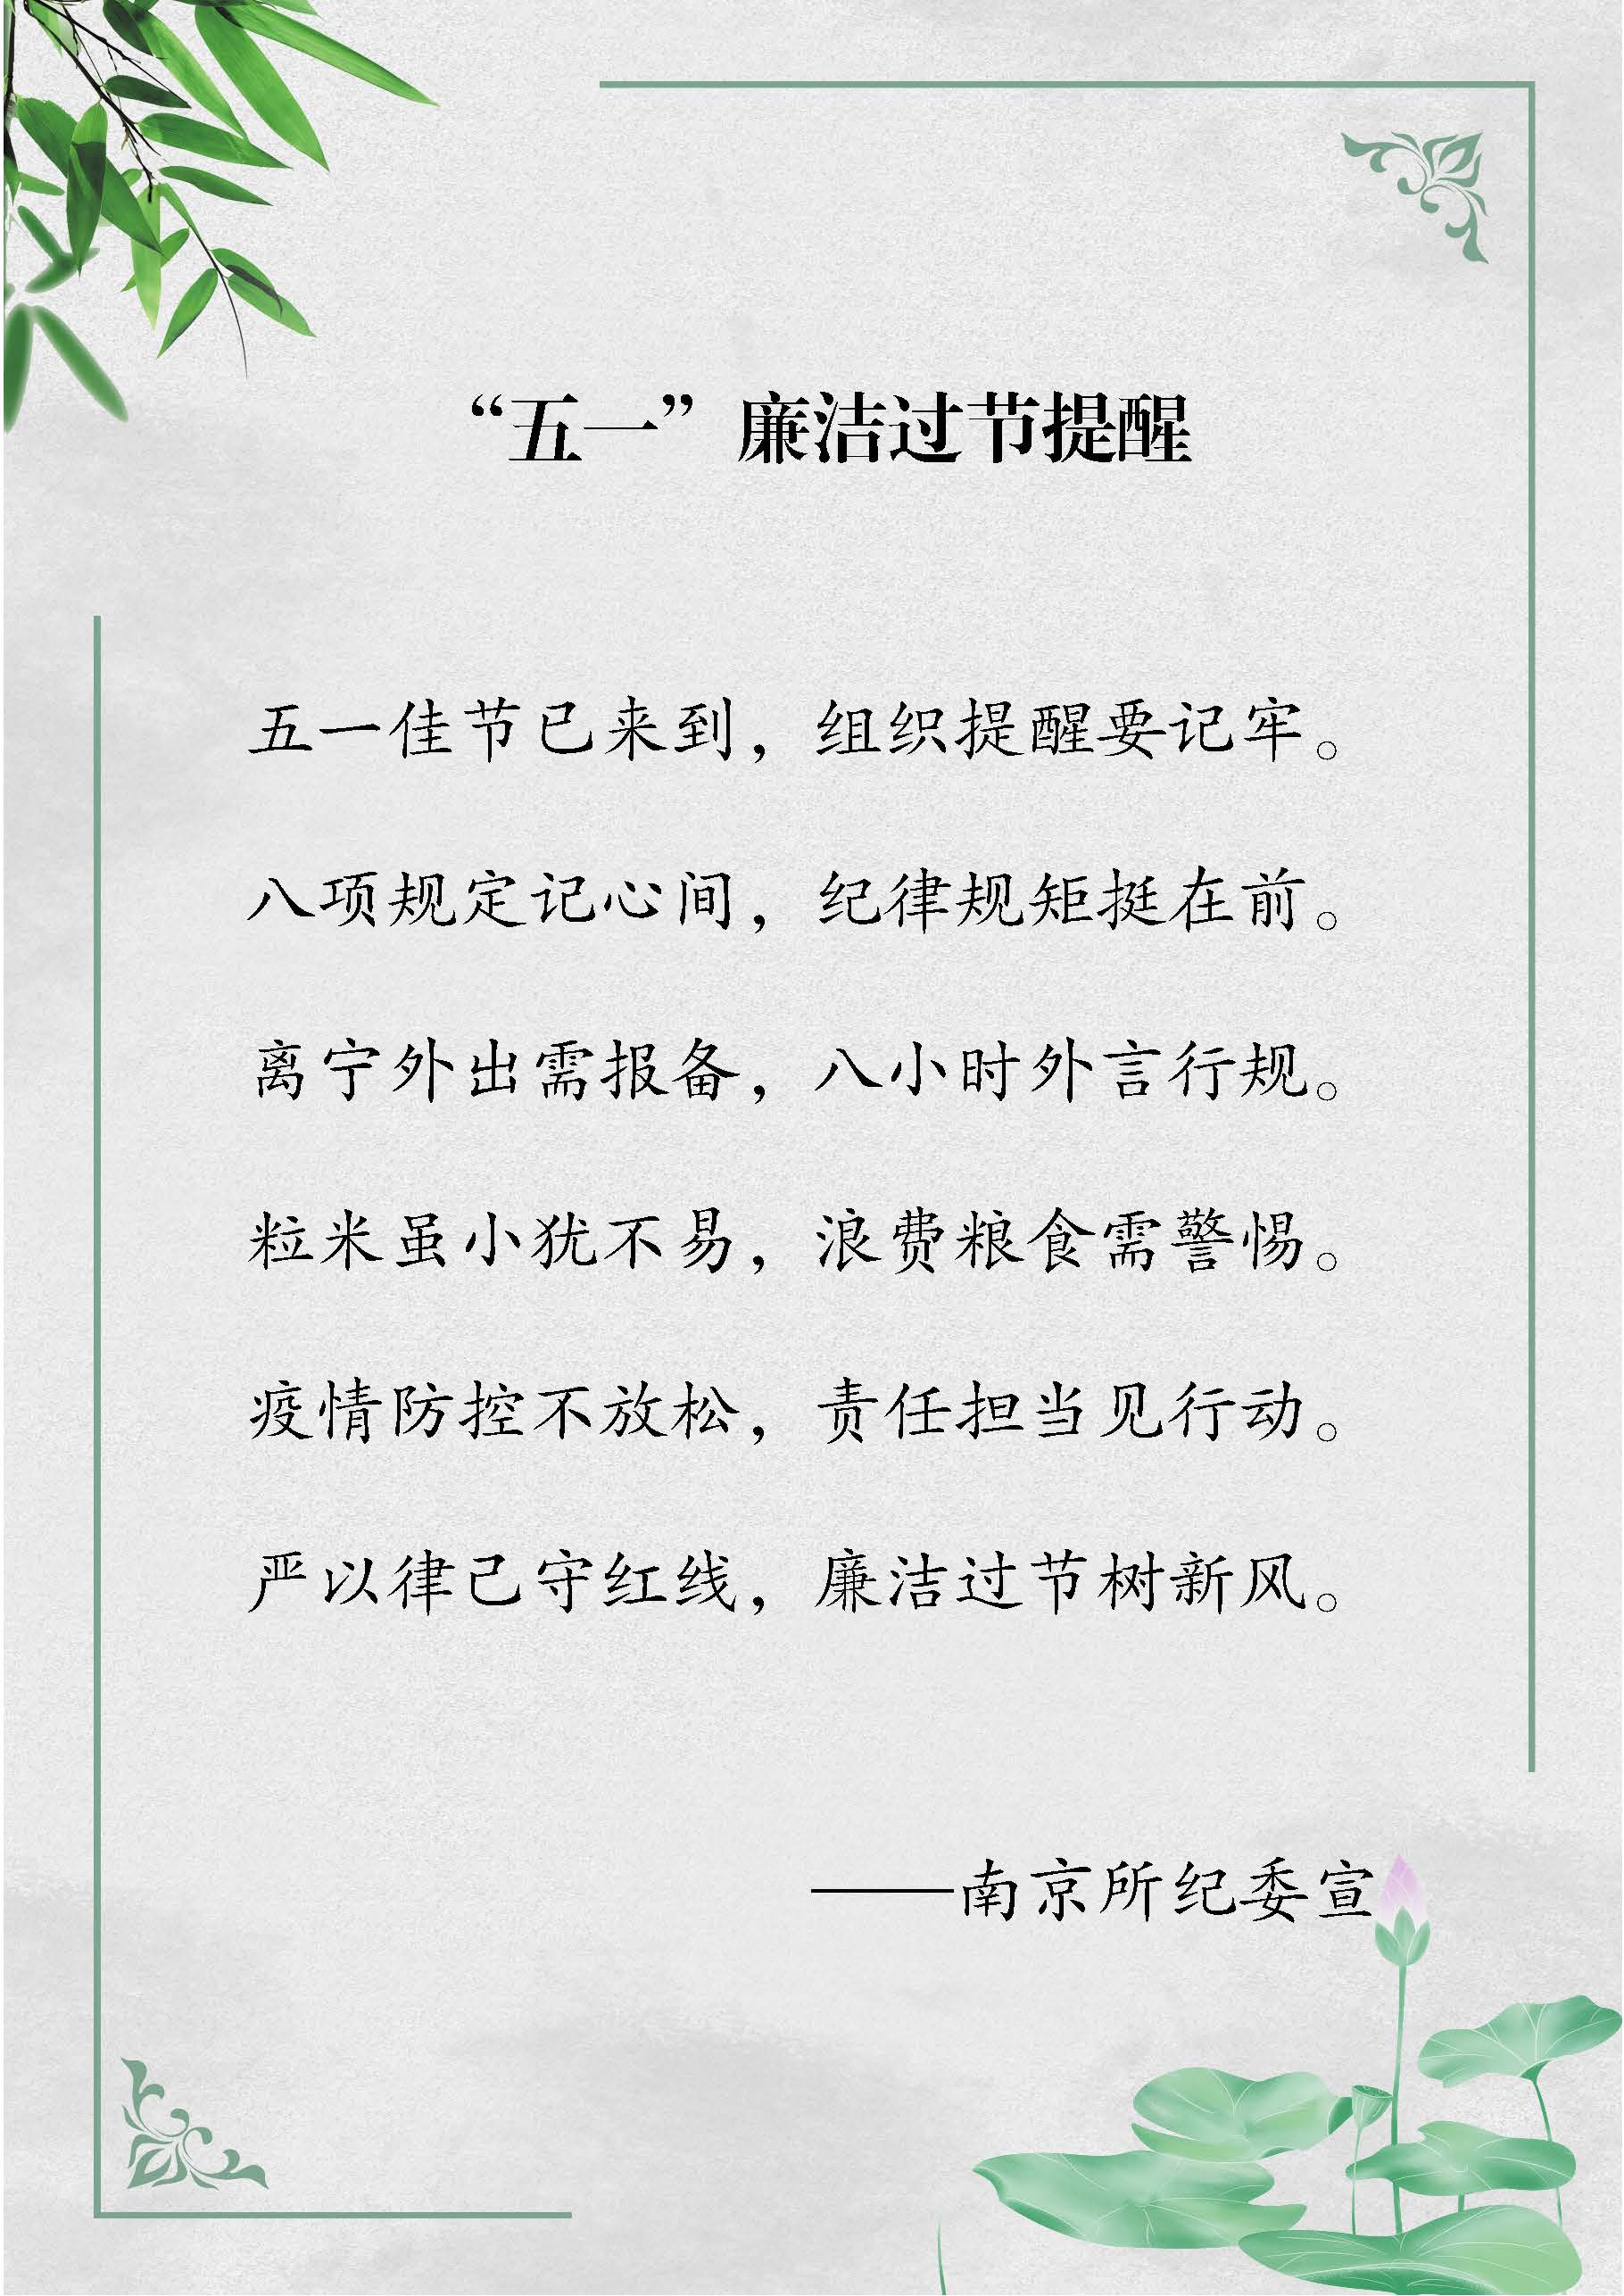 “五一”廉洁过节提醒
五一佳节已来到，组织提醒要记牢。
八项规定记心间，纪律规矩挺在前。
离宁外出需报备，八小时外言行规。
粒米虽小犹不易，浪费粮食需警惕。
疫情防控不放松，责任担当见行动。
严以律己守红线，廉洁过节树新风。
——南京所纪委宣